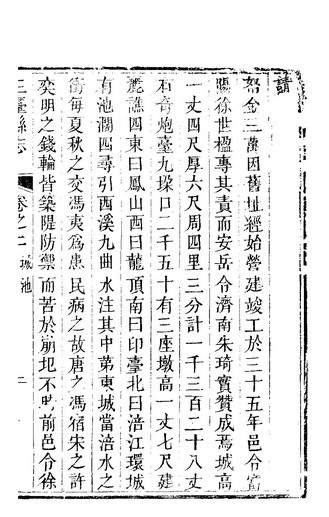 請
帑金三萬因舊址經始營建竣工於三十五年邑令富
陽徐世楹專其責而安岳令濟南朱琦實贊成焉城高
一丈四尺厚六尺周四里三分計一千三百二十八丈
石奇炮臺九垜口二千五十有三座墩高一丈七尺建
麗譙四東曰鳳山西曰龍頂南曰印臺北曰涪江環城
有池濶四尋引西溪九曲水注其中第東城當涪水之
衝每夏秋之交馮夷為患民病之故唐之馮宿宋之許
奕明之錢輪皆築隄防禦而苦於崩圯不
前邑令徐
三臺縣志
卷之二
城池
二